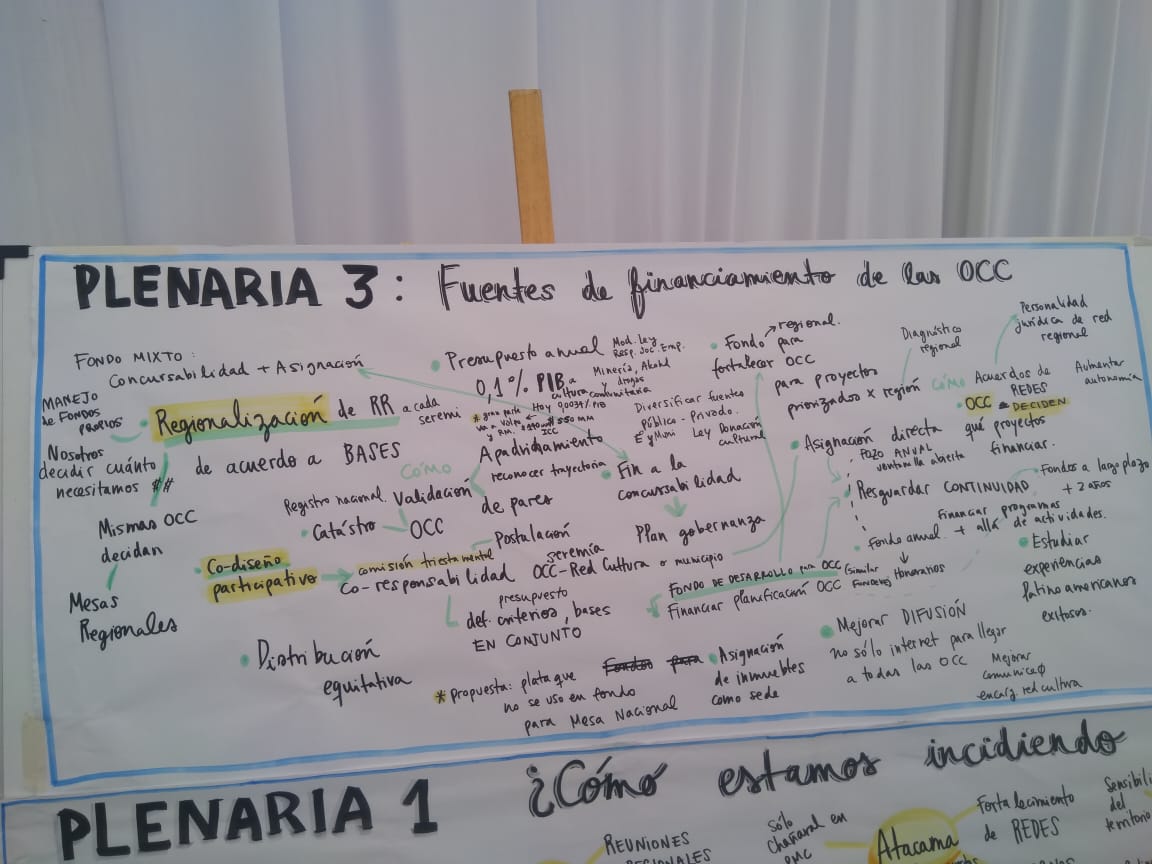 PLENARIA 3: Fuentes de financiamiento de las OCC
FONDO MIXTO:
Concursabilidad + Asignación
MANEJO
DE FONDOS
PROPIOS
Regionalización de RR a cada
seremi
de acuerdo a BASES
Nosotros
decidir cuánto
necesitamos ##
Mismas OCC
decidan
Mesas
Regionales
• Presupuesto anual
0,1% PIB
cultura comunitaria
Hoy
Mod. Ley
Resp. Soc. Emp.
Minería, Alcohol
y drogas
Apadrinamiento
CÓMO
reconocer trayectoria
Registro nacional. Validación
de pares
• Catástro OCC
Postulación
• Co-diseño
participativo
comisión triestamental
Co-responsabilidad OCC-Red Cultura o municipio
seremía
presupuesto
def. criterios, bases
EN CONJUNTO
• Distribución
equitativa
* Propuesta: plata que
no se uso en fondo
para Mesa Nacional
• Fondo para
regional.
fortalecer OCC
Diversificar fuentes
Público - Privado.
Ley Donación
cultural
• Fin a la
concursabilidad
Plan gobernanza
FONDO DE DESARROLLO PARA OCC (Similar
Financiar planificación OCC
Fondos para
• Asignación
de inmuebles
como sede
Diagnóstico
regional
para proyectos
priorizados x región
Personalidad
jurídica de red
regional
CÓMO Acuerdos de
REDES
Aumentar
autonomía
• OCC DECIDEN
qué proyectos
financiar.
• Asignación directa
FONO ANUAL
ventanilla abierta
Resguardar CONTINUIDAD
Fondos a largo plazo
+ 2 años
Financiar programas
+ allá de actividades.
• Fondo anual.
Honorarios
• Estudiar
experiencias
latinoamericanas
exitosas.
• Mejorar DIFUSIÓN
no sólo internet para llegar
a todas las OCC
Mejorar
encarg red cultura
PLENARIA 1 ¿Cómo estamos incidiendo
REUNIONES
REGIONALES
Sólo
Chañaral en
PMC
Atacama
Fortalecimiento
de REDES
Sensibili
del
territorio